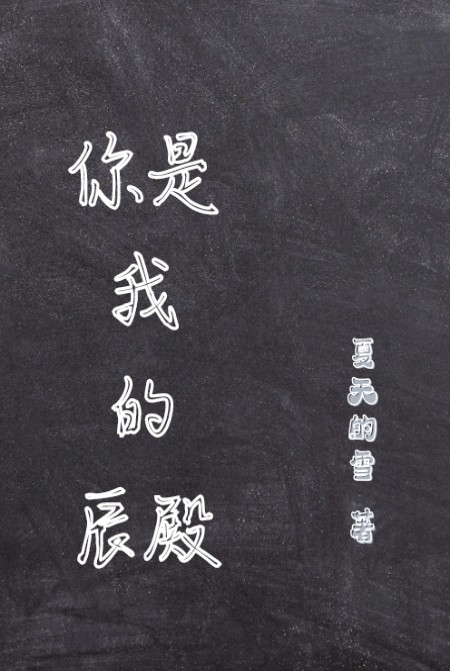 你是
我
的
辰殿
夏天的雪 著